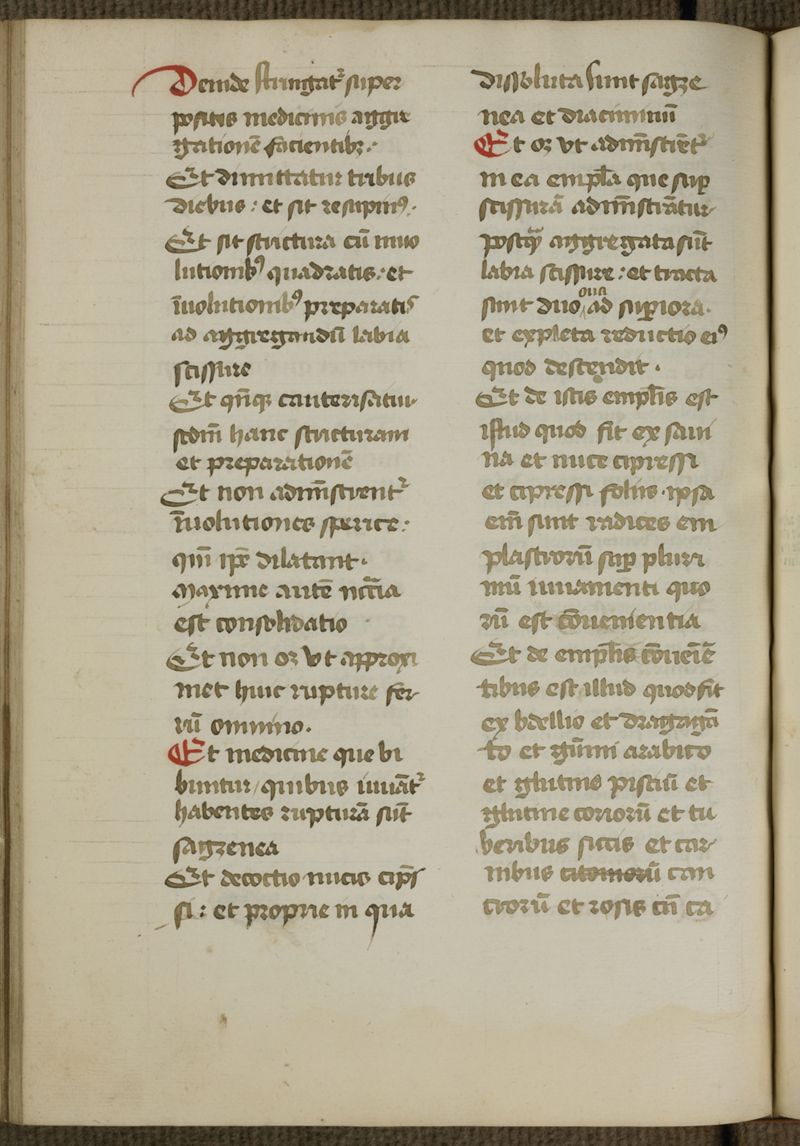 Deinde stringat᷑ super
positis medicinis aggre
gationē facientibꝫ.
Et dimittatur tribus
diebus: et sit resupinꝰ.
Et sit strictura cū inuo
lutionibꝰ quadratis: et
īuolutionibꝰ preparatis
ad aggregandū labia
scissure
Et qn̄qꝫ cauterisatur
scdm̄ hanc stricturam
et preparationē
Et non admīstrent᷑
īuolutiones sperice:
qm̄ ip̄e dilatant.
maxime autē nccīa
est consolidatio
Et non oꝫ vt approxi
met huic rupture fer
rū omnino.
Et medicine que bi
buntur, quibus iuuāt᷑
habentes rupturā sūt
sagzenea
Et decoctio nucis cip̄s
si: et proprie in qua
dissoluta sunt sagze
nea et diaciminū
Et oꝫ vt admīstrēt᷑
in ea empl̄a que suꝑ
scissurā admīstrātur
postꝙ̄ aggregata sūt
labia scissure: et tracta
sint duo oua ad suꝑiora.
et expleta reductio eiꝰ
quod descendit.
Et de istis empl̄is est
istud quod fit ex saui
na et nuce cipressi
et cipressi foliis. ipsa
em̄ sunt radices em
plastrorū suꝑ pluri
mū iuuamenti quo
rū est cōuenientia
Et de empl̄is cōueniē
tibus est illud quod fit
ex bdellio et dragagā
to et gūmi arabico
et glutino pisciū et
glutine coriorū et tu
beribus siccis et car
nibus citoniorū can
crorū et rosis cū ca